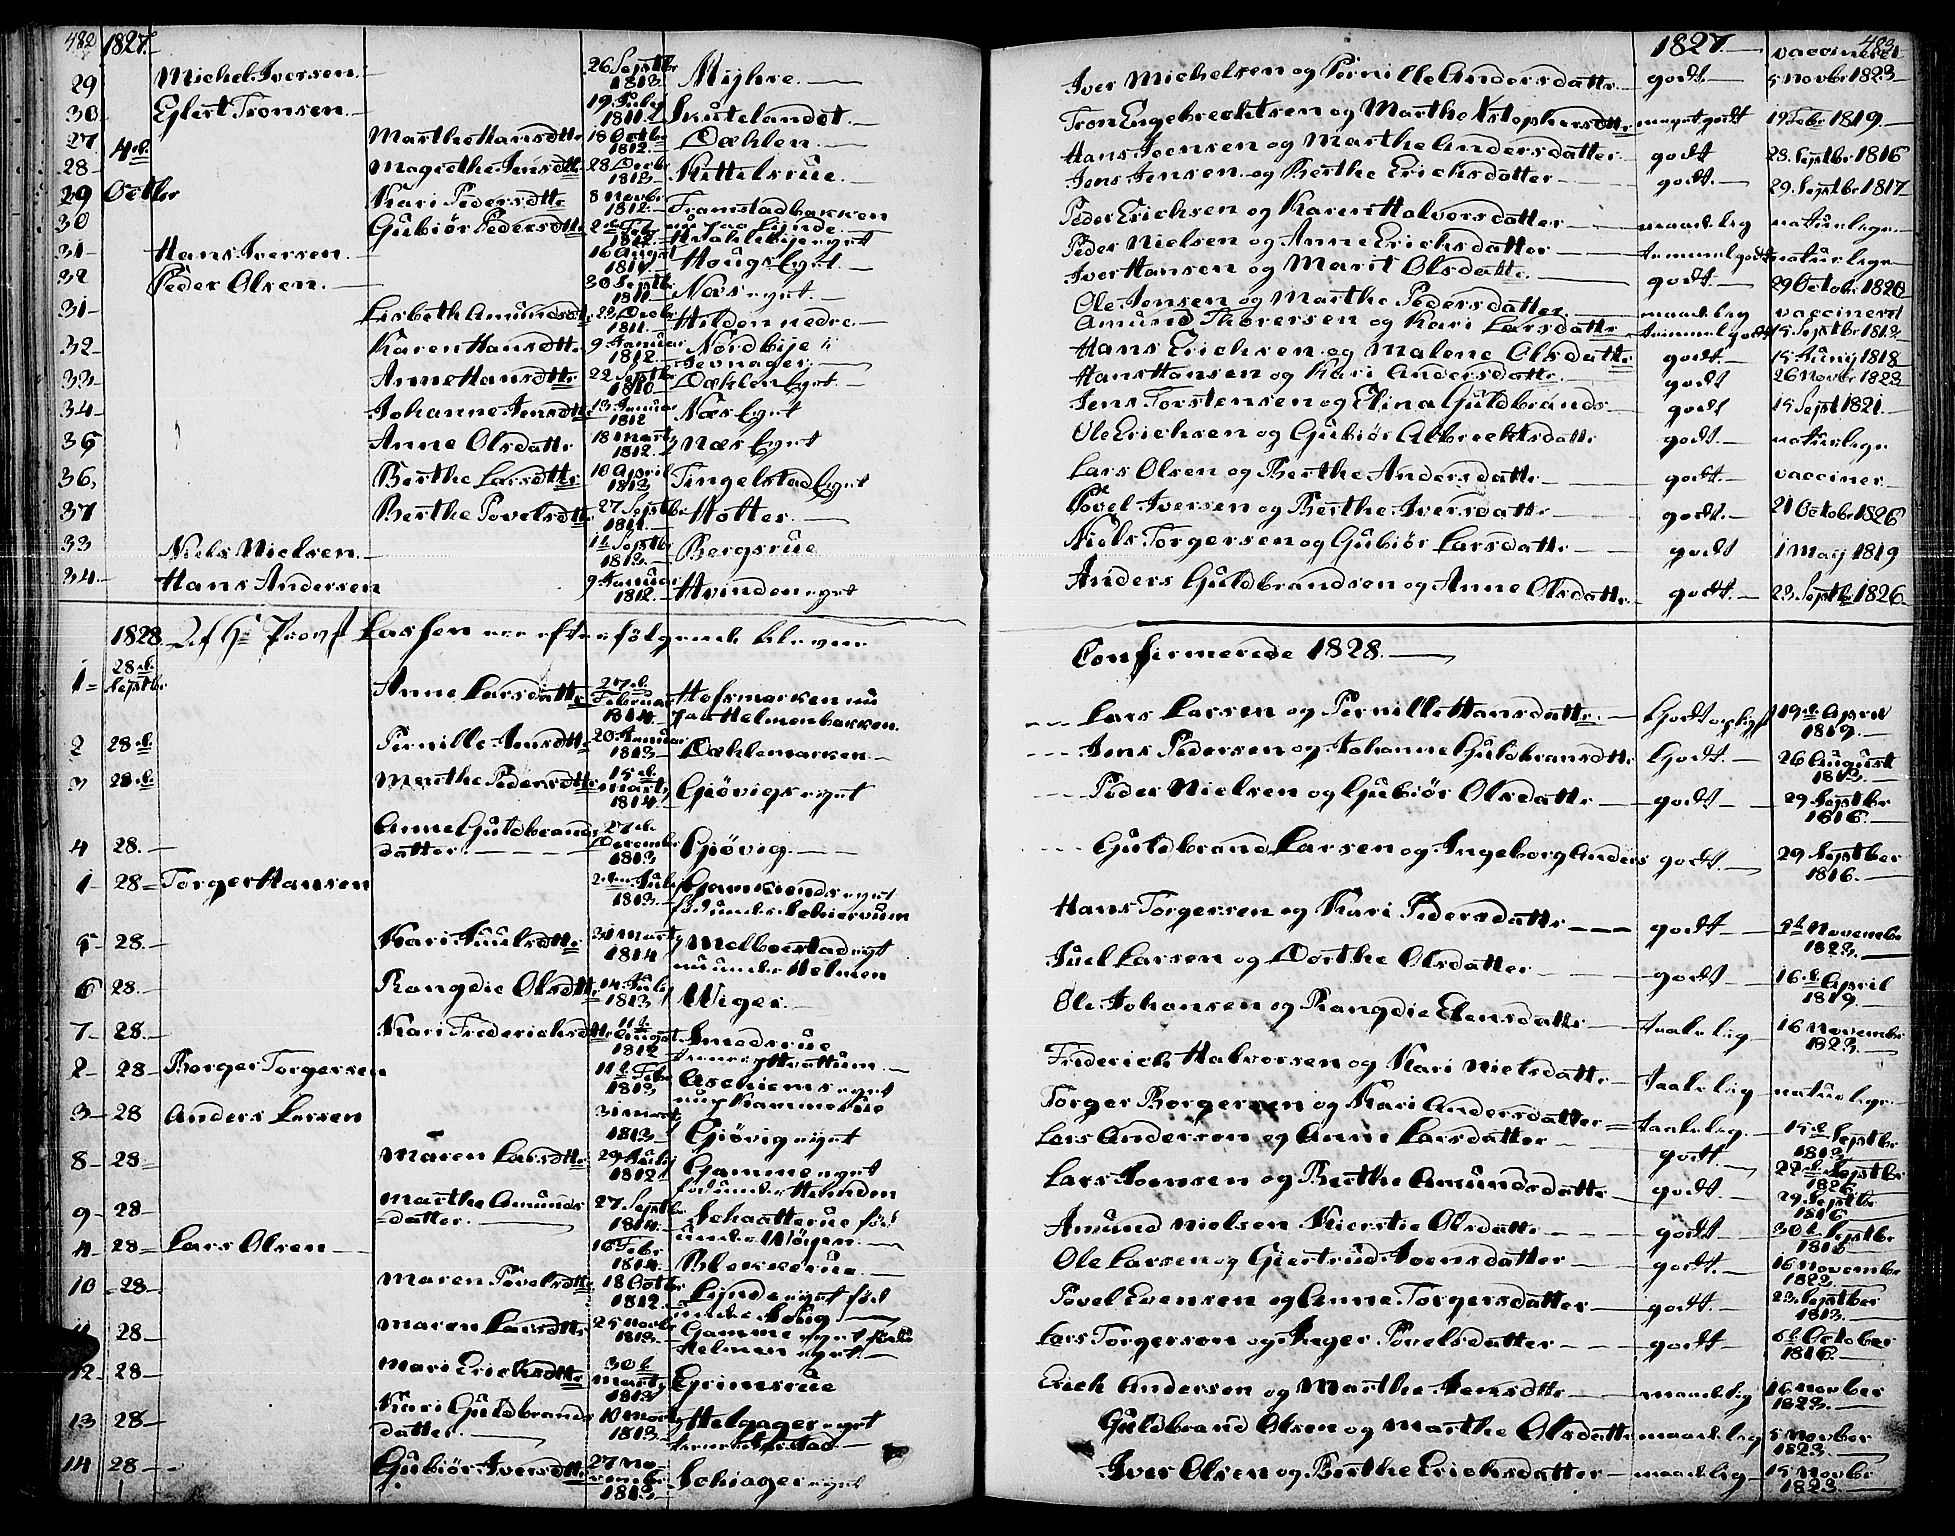 482 1827.
29 Michel Iversen 26 Septbr 1813. Myhre.
30 Eylert Tronsen. 19 July 1811. Skutelandet.
27 4de Marthe Hansdttr 18 Octbr 1812. Dæhlen.
28 Magrethe Jensdttr 28 Decbr 1813 Kittelsrue.
29 Octbr Kari Pedersdttr 8 Novbr 1812. Framstadbakken
30 Gubiør Pedersdttr
31 Hans Iversen. 16 Augst 1811. Hougs Eyet.
32 Peder Olsen. 30 Septbr 1811 Næs eyet.
31 Lisbeth Amundsdttr 23 Decbr 1811. Hilden nedre.
32 Karen Hansdttr 9 Januar 1812. Nordbye i
Jevnager.
33 Anne Hansdttr 22 Septbr 1810 Dæhlen Eyet
34 Johanne Jensdttr 13 Januar 1812 Næs Eyet
35 Anne Olsdattr 18 Marty 1812. Næs Eyet
36, Berthe Larsdttr 10 April 1813 Tingelstad Eyet
37 Berthe Povelsdttr 27 Septbr 1811. Holter.
33 Niels Nielsen. 12 Septbr 1813. Bergsrue
34 Hans Andersen 9 Januar 1812. Hvinden eyet
1828. Af Hr Provst Lassen ere efterfølgende bleven
1 28de Septbr Anne Larsdattr 27de Februar 1814. Hofsmarken nu
paa Helmenbakken.
2 28de Pernille Jensdttr 20 Januar 1813 Dæhlemarken
3 28de Marthe Pedersdttr 15de Marty 1814. Gjøvigs eyet
4 28. Anne Guldbrands
datter. 27de December 1813 Gjøvig
1 28 Torger Hansen July 1813.
5 28. Kari Juulsdttr 31 Marty 1814 Melboestad eyet
nu under Helmen
6 28. Rangdie Olsdttr 14 July 1813 Wiger.
7 28. Kari Frederichsdttr 11te Augst 1812 Smedsrue
2 28 Borger Torgersen 11te Febr 1813 Aschiems eyet
3 28 Anders Larsen 31 Mart 1813 Gjøvig eyet
8 28 Maren Larsdttr 29 July 1812 Gamme eyet
fød under Hvinden
9 28 Marthe Amunds
datter. 27 Septbr 1814. Schaatterue fød
under Wøyen.
4 28 Lars Olsen 16 Febr 1814. Blekkerue.
10 28 Maren Povelsdttr 18 Octbr 1812. Lynde eyet fød
under Houg
11 28 Maren Larsdttr 25 Novbr 1813. Gamme eyet
Helmen eyet
12 28 Mari Erichsdttr 30te Marty 1813 Grimsrue
13 28 Kari Guldbrands
datter. 10 Mart 1813. Helgager eyet
14 28 Gubiør Iversdttr 27 November 1813 Schiager eyet
1827 vaccineret 483
Iver Michelsen og Pernille Andersdattr godt 5 Novbr 1823
Tron Engebrechtsen og Marthe Kristophersdttr meget godt 19 Febr 1819
Hans Joensen og Marthe Andersdatter godt 28. Septbr 1816
Jens Jensen og Berthe Erichsdatter godt. 29. Septbr 1817
Peder Erichsen og Karen Halversdatter maadelig naturlege
Peder Nielsen og Anne Erichsdatter temmel godt naturlege
Iver Hansen og Marit Olsdattr. godt. 29 Octobr 1820
Ole Jensen og Marthe Pedersdatter maadelig vaccineret
Amund Thorersen og Kari Larsdattr temmel godt 15 Septbr 1813
Hans Erichsen og Malene Olsdattr godt. 15 Juny 1818
Hans Hansen og Kari Andersdattr godt 26 Novbr 1823
Jens Torstensen og Elina Guldbrands godt 15 Sept 1821
Ole Erichsen og Gubiør Albrechtsdattr godt. naturlege
Lars Olsen og Berthe Andersdattr godt. vacciner
Povel Iversen og Berthe Iversdattr godt. 21 Octobr 1826
Niels Torgersen og Gubiør Larsdattr godt 1 May 1819
Anders Guldbrandsen og Anne Olsdattr godt. 23 Septbr 1826
Confirmerede 1828.
Lars Larsen og Pernille Hansdattr. 19de April 1819.
Jens Pedersen og Johanne Guldbransdttr Godt. 26 August 1813.
Peder Nielsen og Gubiør Olsdattr godt 29 Septbr 1816.
Guldbrand Larsen og Ingeborg Anders godt. 29 Septber 1816.
Hans Torgersen og Kari Pedersdattr godt Novembr 1823.
Juel Larsen og Dorthe Olsdatter godt 16de April 1819.
Ole Johansen og Rangdie Elensdattr taalelig 16 November 1823.
Frederich Halvorsen og Kari Nielsdattr taalelig naturlege
Torger Borgersen og Kari Andersdatter taalelig. 15de Septbr 1813
Lars Andersen og Anne Larsdatter godt. Septbr 1826
Lars Joensen og Berthe Amundsdattr godt. 29 Septbr 1816
Amund Nielsen Kierstie Olsdattr godt 30te Septbr 1815
Ole Larsen og Giertrud Joensdatter godt. 16 November 1823.
Povel Evensen og Anne Torgersdatter godt. 23 Septber 1813.
Lars Torgersen og Inger Povelsdatter godt 6te October 1816.
Erich Andersen og Marthe Jensdttr maadelig 16 Novber 1823.
Guldbrand Olsen og Marthe Olsdattr maadelig 5 Novber 1823.
Iver Olsen og Berthe Erichsdatter maadelig 15 Novbr 1823.